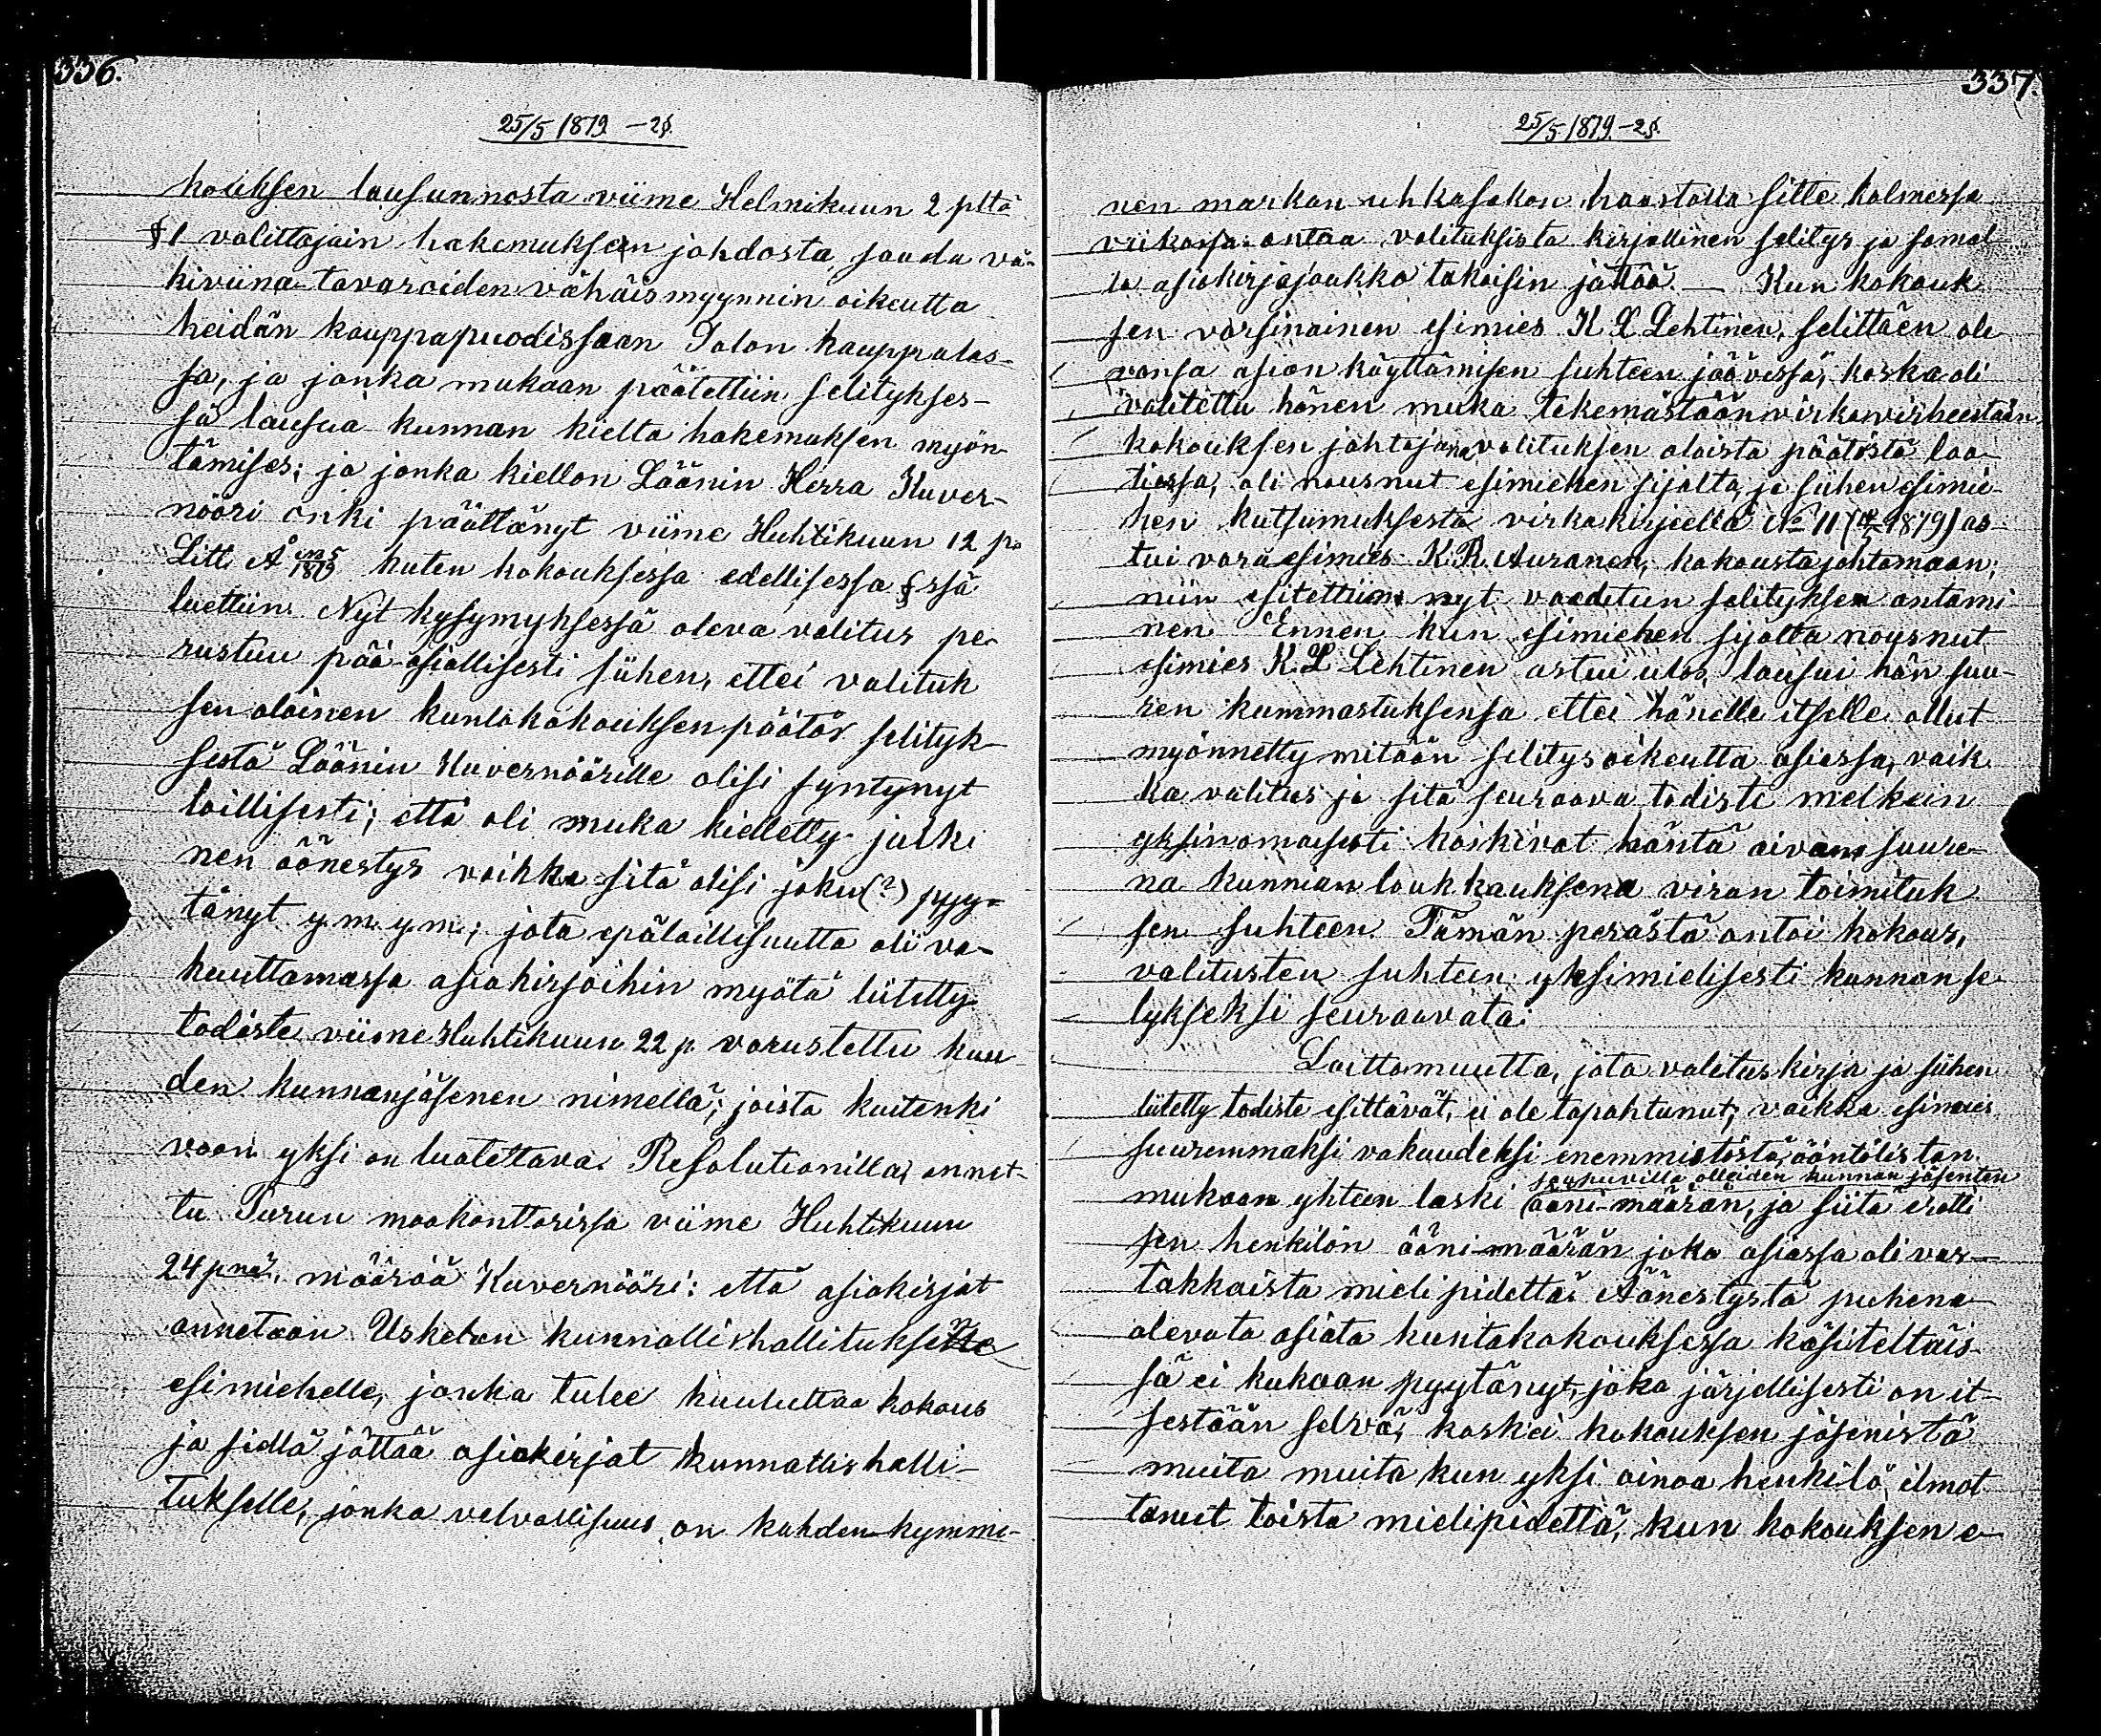 336.
25/5 1879 - 2§.
kouksen lausunnosta viime Helmikuun 2 pltä
§ 1 valittajain hakemuksen johdosta saada vä-
kiviina-tavaroiden vähäismyynnin oikeutta
heidän kauppapuodissaan Salon kauppalas-
sa, ja jonka mukaan päätettiin selitykses-
sä lausua kunnan kielto hakemuksen myön-
tämises; ja jonka kiellon Läänin Herra Kuver-
nööri onki päättänyt viime Huhtikuun 12 p:
Litt. A kuten kokouksessa edellisessä § ssä
luettiin. Nyt kysymyksessä oleva valitus pe-
rustuu pää-asiallisesti siihen, ettei valituk
sen alainen kuntakokouksen päätös selityk-
sestä Läänin Kuvernöörille olisi syntynyt
laillisesti; että oli muka kielletty julki
nen äänestys vaikka sitä olisi joku (?) pyy-
tänyt y. m. y. m.; jota epälaillisuutta oli va-
kuuttamassa asiakirjoihin myötä liitetty
todiste viime Huhtikuun 22 p. varustettu kuu-
den kunnanjäsenen nimellä; joista kuitenki
vaan yksi on luotettava. Resolutionilla, annet-
tu Turun maakonttorissa viime Huhtikuun
24 pnä, määrää Kuvernööri: että asiakirjat
annetaan Uskelan kunnallishallituksen
esimiehelle, jonka tulee kuuluttaa kokous
ja siellä jättää asiakirjat kunnallishalli-
tukselle, jonka velvollisuus on kahden-kymme-
337.
25/5 1879 - 2§.
nen markan uhkasakon haastolla sitte kolmessa
viikossa antaa valituksista kirjallinen selitys ja samal
la asiakirjajoukko takaisin jättää. — Kun kokouk
sen varsinainen esimies K L Lehtinen, selittäen ole
vansa asian käyttämisen suhteen jäävissä, koska oli
valitettu hänen muka tekemästään virkavirheestään
kokouksen johtajana valituksen alaista päätöstä laa-
tiessa, oli nousnut esimiehen sijalta, ja siihen esimie-
hen kutsumuksesta virkakirjeellä No 11 as-
tui varaesimies K. R. Auranen, kokousta johtamaan;
niin esitettiin nyt vaaditun selityksen antami
nen. Ennen kun esimiehen sijalta nousnut
esimies K. L Lehtinen astui ulos, lausui hän suu-
ren kummastuksensa ettei hänelle itselle ollut
myönnetty mitään selitysoikeutta asiassa, vaik
ka valitus ja sitä seuraava todiste melkein
yksinomaisesti koskivat häntä aivan suure-
na kunnian loukkauksena viran toimituk
sen suhteen. Tämän perästä antoi kokous,
valitusten suhteen yksimielisesti kunnan se
lykseksi seuraavata:
Laittomuutta, jota valituskirja ja siihen
liitetty todiste esittävät, ei ole tapahtunut; vaikka esimies
suuremmaksi vakuudeksi enemmistöstä, ääntölistan
saapuvilla olleiden kunnan jäsenten
mukaan yhteen laski ääni-määrän, ja siitä erotti
sen henkilön ääni-määrän joka asiassa oli vas-
takkaista mielipidettä. Äänestystä puheena
olevata asiata kuntakokouksessa käsiteltäis-
sä ei kukaan pyytänyt, joka järjellisesti on it-
sestään selvä, koskei kokouksen jäsenistä
muita muita kun yksi ainoa henkilö, ilmot
tanut toista mielipidettä, kun kokouksen e-